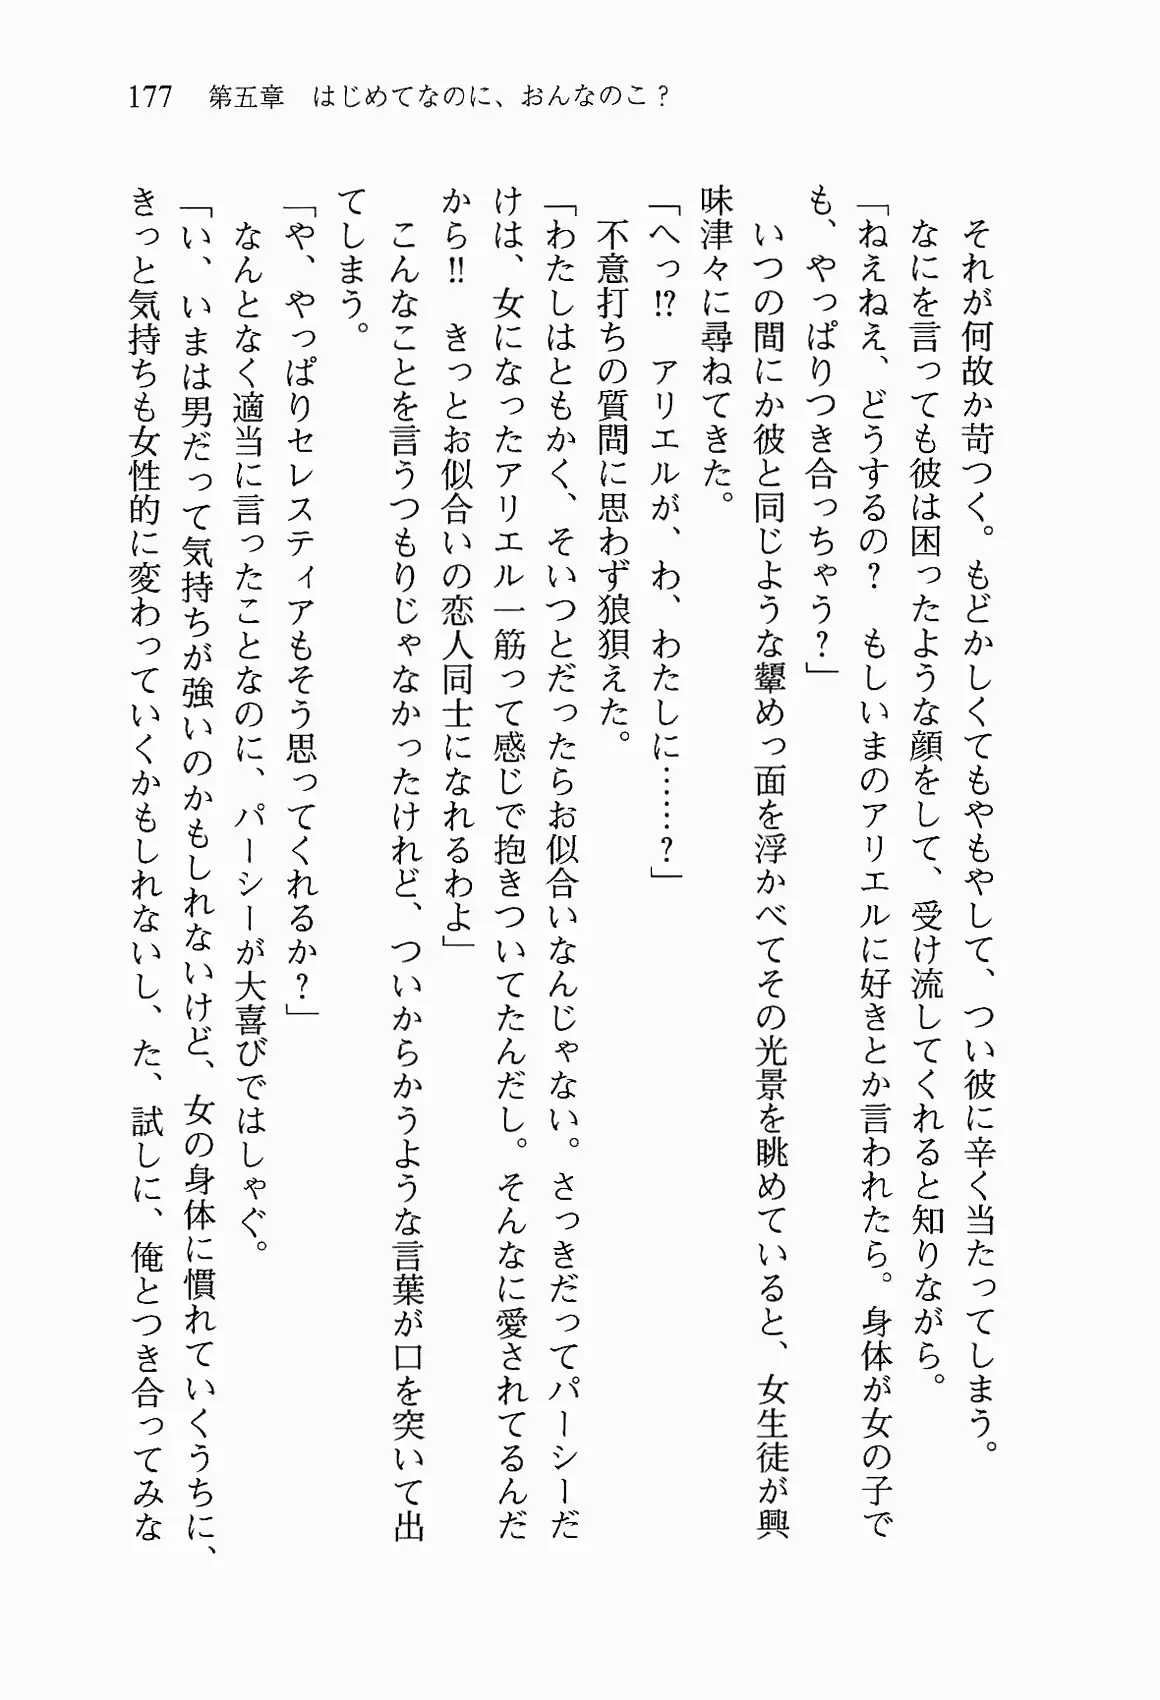 177　第五章　はじめてなのに、おんなのこ？
　それが何故か苛つく。もどかしくてもやもやして、つい彼に辛く当たってしまう。
　なにを言っても彼は困ったような顔をして、受け流してくれると知りながら。
「ねえねえ、どうするの？　もしいまのアリエルに好きとか言われたら。身体が女の子で
も、やっぱりつき合っちゃう？」
　いつの間にか彼と同じような顰めっ面を浮かべてその光景を眺めていると、女生徒が興
味津々に尋ねてきた。
「へっ!?　アリエルが、わ、わたしに……？」
　不意打ちの質問に思わず狼狽えた。
「わたしはともかく、そいつとだったらお似合いなんじゃない。さっきだってパーシーだ
けは、女になったアリエル一筋って感じで抱きついてたんだし。そんなに愛されてるんだ
から!!　きっとお似合いの恋人同士になれるわよ」
　こんなことを言うつもりじゃなかったけれど、ついからかうような言葉が口を突いて出
てしまう。
「や、やっぱりセレスティアもそう思ってくれるか？」
　なんとなく適当に言ったことなのに、パーシーが大喜びではしゃぐ。
「い、いまは男だって気持ちが強いのかもしれないけど、女の身体に慣れていくうちに、
きっと気持ちも女性的に変わっていくかもしれないし、た、試しに、俺とつき合ってみな